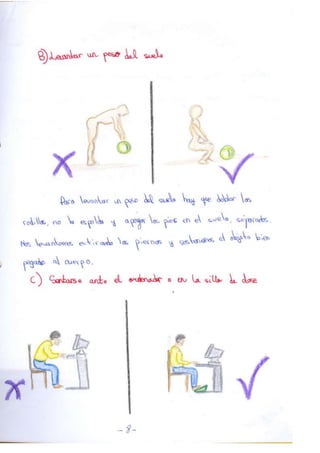 B) Levantar un peso del suelo
Para levantar un peso del suelo hay que doblar las
rodillas, no la espalda y apoyar los pies en el suelo, separados.
Nos levantamos estirando las piernas y sostenemos el objeto bien
pegado al cuerpo.
C) Sentarse ante el ordenador o en la silla de clase
-8-